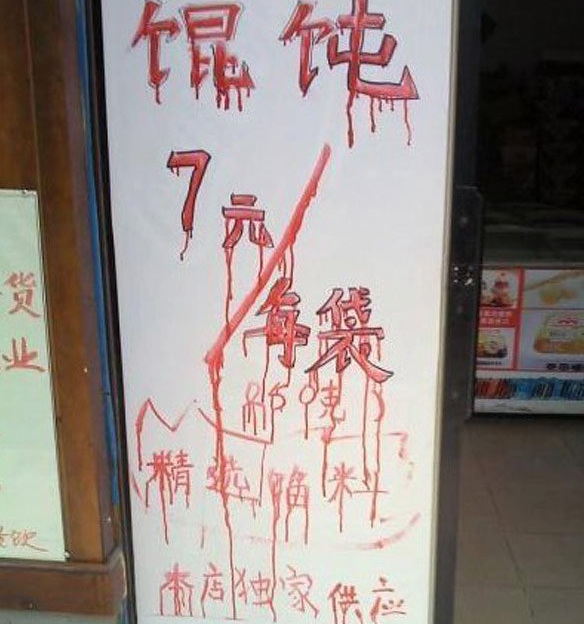 馄饨
7元/
每袋
克
精选馅料
本店独家供应
货
业